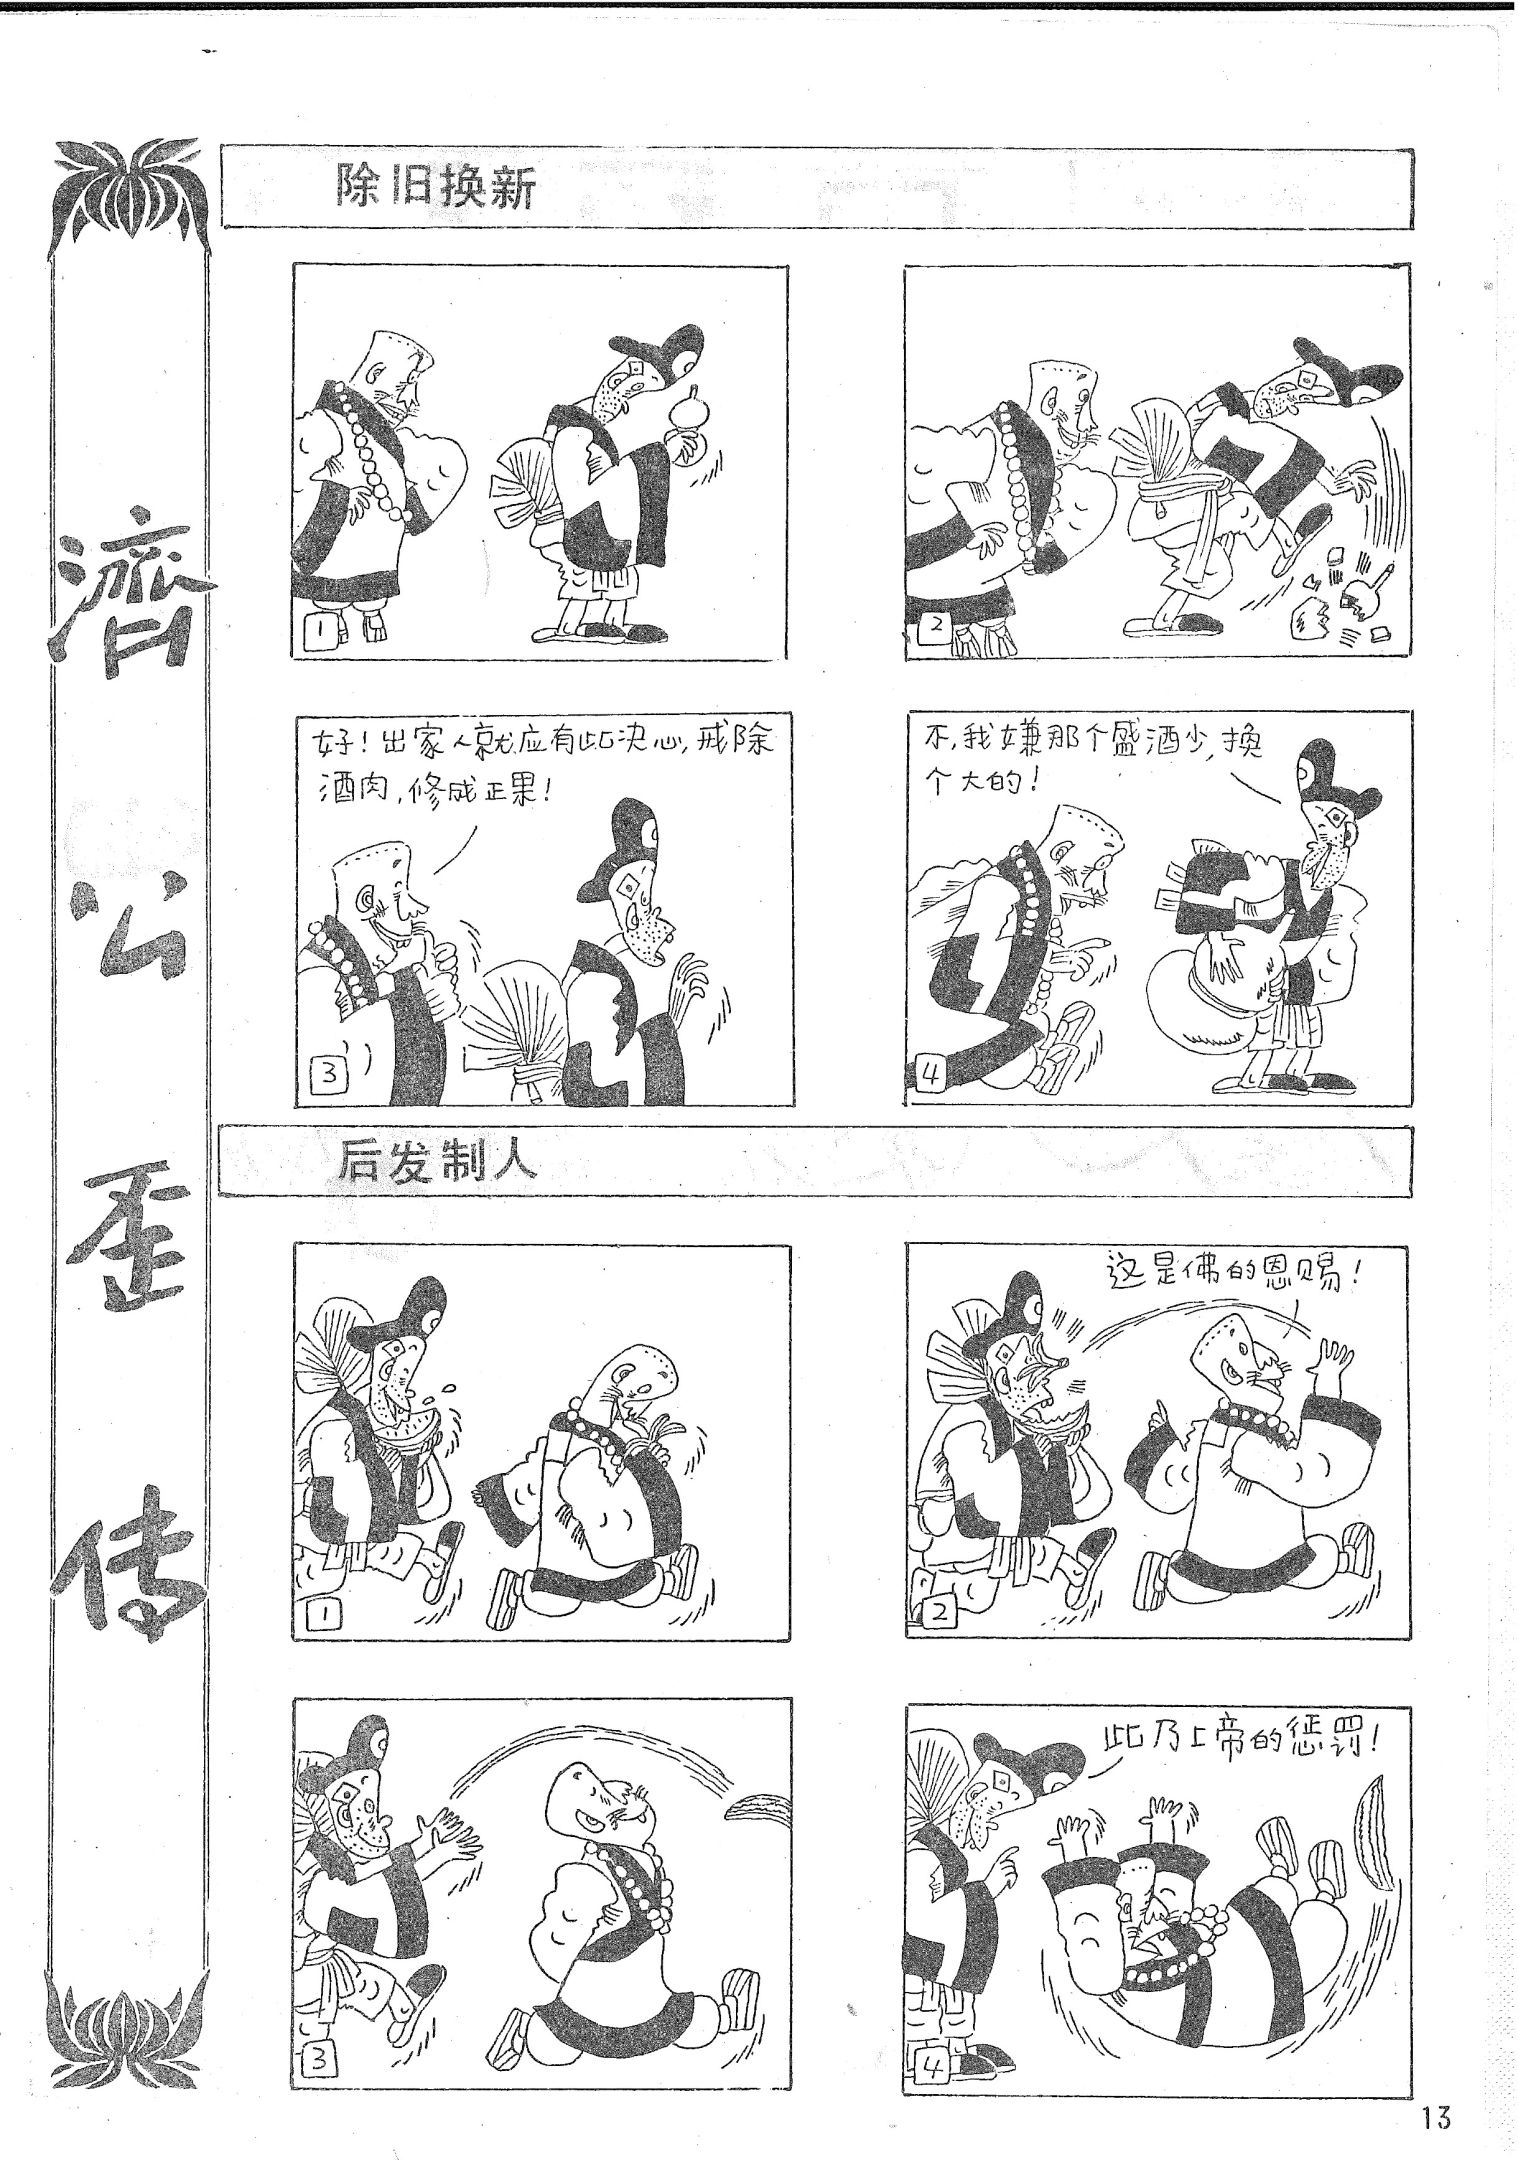 濟公歪传
除旧换新
1
2
好!出家人就应有此决心,戒除
酒肉,修成正果!
3
不,我嫌那个盛酒少,换
个大的!
4
后发制人
1
这是佛的恩赐!
2
3
此乃上帝的惩罚!
4
13